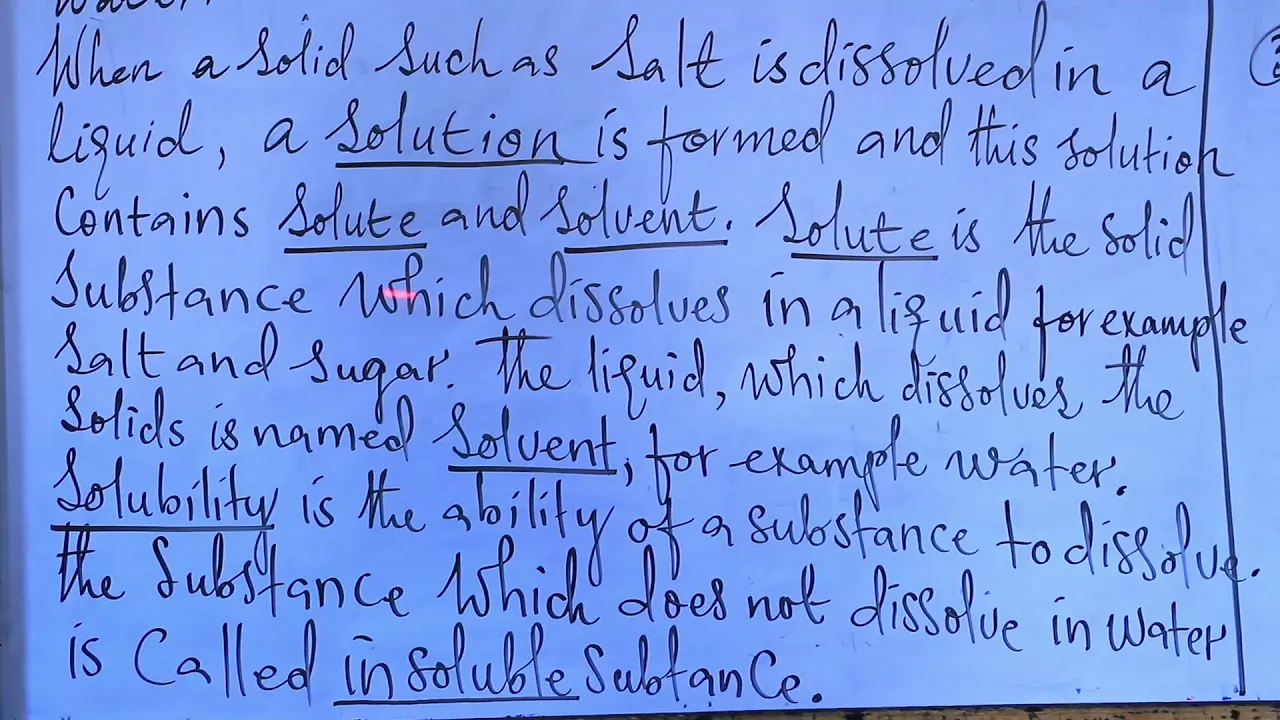 When a solid such as salt is dissolved in a
liquid, a solution is formed and this solution
Contains solute and solvent. Solute is the solid
Substance which dissolves in a liquid for example
Salt and sugar. The liquid, which dissolves the
Solids is named Solvent, for example water.
Solubility is the ability of a substance to dissolve.
the Substance which does not dissolve in water
is Called insoluble Subtance.